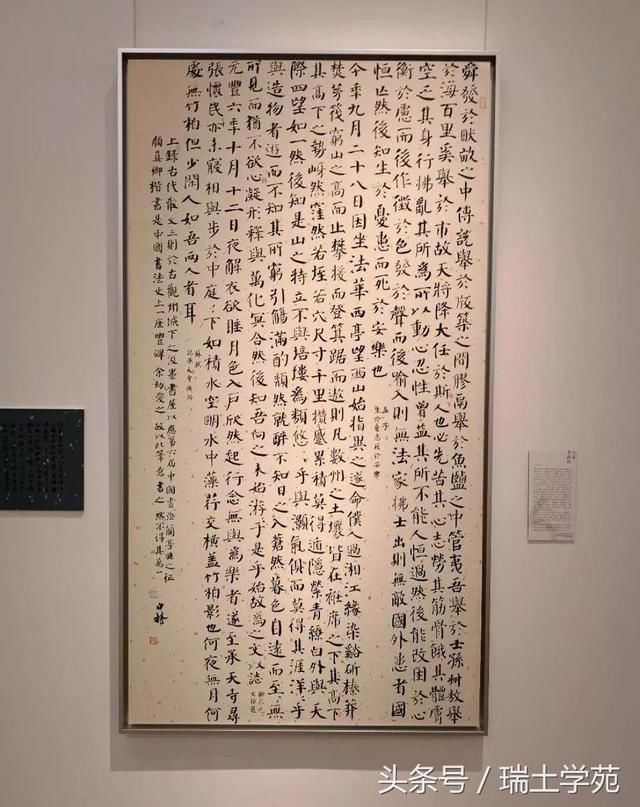 舜發於畎畝之中傅說舉於版築之間膠鬲舉於魚鹽之中管夷吾舉於士孫叔敖舉
於海百里奚舉於市故天將降大任於斯人也必先苦其心志勞其筋骨餓其體膚
空乏其身行拂亂其所為所以動心忍性曾益其所不能人恒過然後能改困於心
衡於慮而後作徵於色發於聲而後喻入則無法家拂士出則無敵國外患者國
恒亡然後知生於憂患而死於安樂也
孟子
生於憂患死於安樂
今年九月二十八日因坐法華西亭望西山始指異之遂命僕人過湘江緣染谿斫榛莽
焚茅筏窮山之高而止攀援而登箕踞而遨則凡數州之土壤皆在衽席之下其高下
其高下之勢岈然窪然若垤若穴尺寸千里攢蹙累積莫得遁隱縈青繚白外與天
際四望如一然後知是山之特立不與培塿為類悠、乎與灝氣俱而莫得其涯洋、乎
與造物者遊而不知其所窮引觴滿酌頹然就醉不知日之入蒼然暮色自遠而至無
所見而猶不欲心凝形釋與萬化冥合然後知吾向之未始游乎是乎始故為之文以誌
元豐六年十月十二日夜解衣欲睡月色入戶欣然起行念無與為樂者遂至承天寺尋
張懷民亦未寢相與步於中庭下如積水空明水中藻荇交橫蓋竹柏影也何夜無月何
處無竹柏但少閑人如吾兩人者耳
蘇軾
記承天寺夜游
上錄古代散文三則於古觀州城下之汲墨書屋以應第六屆中國書法蘭亭獎之征
顏真卿楷書是中國書法史上一座豐碑余幼愛之故以此筆意書之然不得其萬一
头条号 / 瑞土学苑